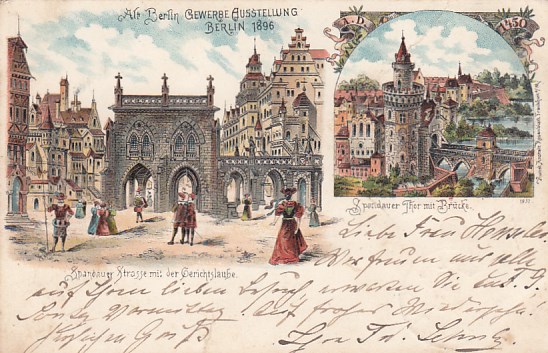 Alt Berlin GEWERBE AUSSTELLUNG
BERLIN 1896
A.D. 1450
Spandauer Thor mit Brücke.
Spandauer Strasse mit der Gerichtslaube.
Liebe Frau
Wir freuen uns alle
auf Ihren lieben Besuch erwarten Sie
Sonntag Vormittag. Auf frohes Wiedersehn!
Herzlichen Gruß
Ihre